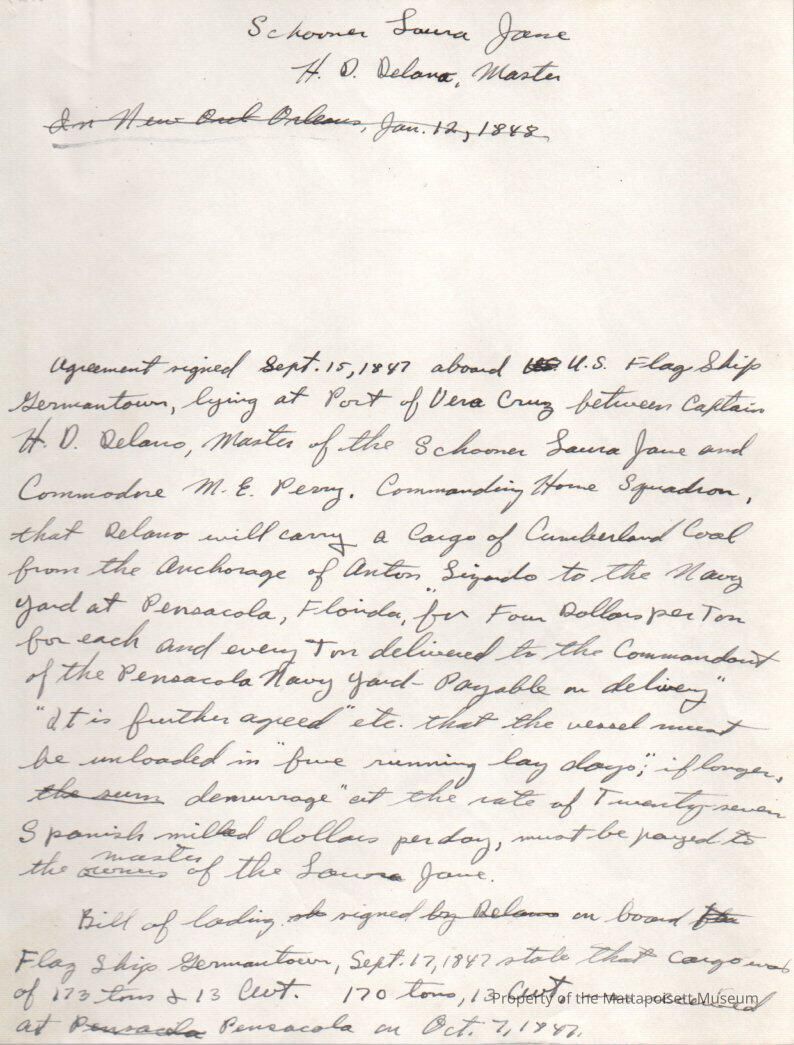 Schooner Laura Jane
H. D. Delano, Master
In New Orl Orleans, Jan. 12, 1848
Agreement signed Sept. 15, 1847 aboard US U.S. Flag Ship
Germantown, lying at Port of Vera Cruz between Captain
H. D. Delano, Master of the Schooner Laura Jane and
Commodore M. E. Perry. Commanding Home Squadron,
that Delano will carry a Cargo of Cumberland Coal
from the Anchorage of Anton Lizardo to the Navy
Yard at Pensacola, Florida, "for Four Dollars per Ton
for each and every Ton delivered to the Commandant
of the Pensacola Navy Yard - Payable on delivery"
"It is further agreed" etc. that the vessel must
be unloaded in "five running lay days"; if longer,
the sum demurrage "at the rate of Twenty-seven
Spanish milled dollars per day, must be payed to
master
the owners of the Laura Jane.
Bill of lading sh signed by Delano on board the
Flag Ship Germantown, Sept. 17, 1847 state that cargo was
of 173 tons & 13 Cwt. 170 tons, 13 Cwt
at Pensacola Pensacola on Oct. 7, 1847.
Property of the Mattapoisett Museum